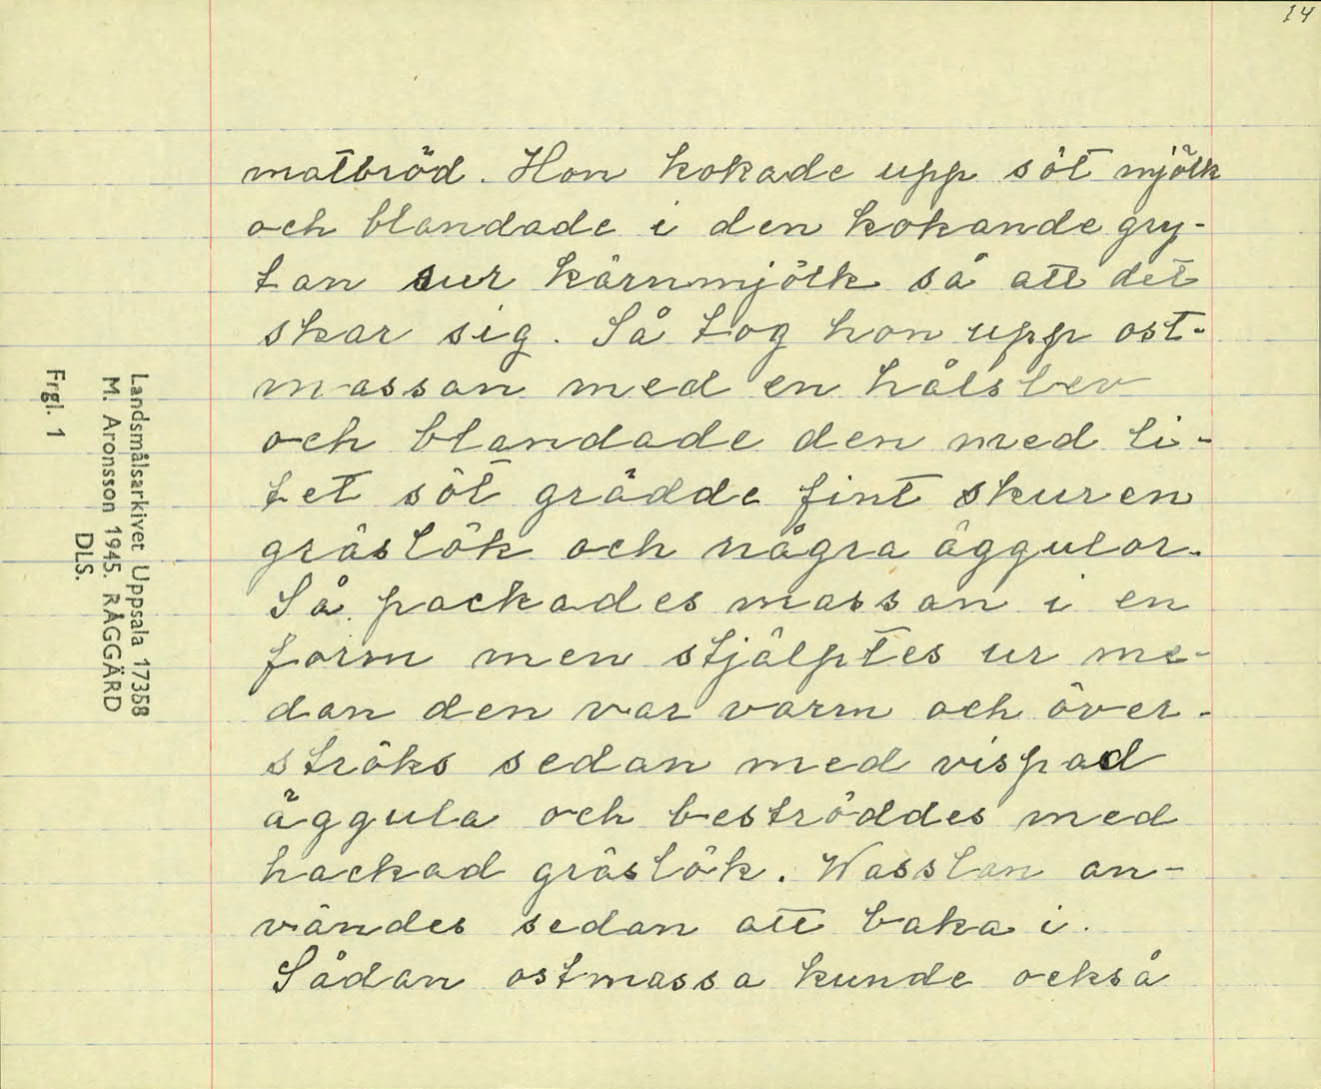 14
matbröd. Hon kokade upp söt mjölk
och blandade i den kokande gry-
tan sur kärnmjölk så att det
skar sig. Så tog hon upp ost-
massan med en hålslev
och blandade den med li-
tet söt grädde fint skuren
gräslök och några äggulor.
Så packades massan i en
form men stjälptes ur me-
dan den var varm och över-
ströks sedan med vispad
äggula och beströddes med
hackad gräslök. Wasslan an-
vändes sedan att baka i.
Sådan ostmassa kunde också
Landsmålsarkivet Uppsala 17358
M. Aronsson 1945. RÅGGÄRD
DLS.
Frgl. 1